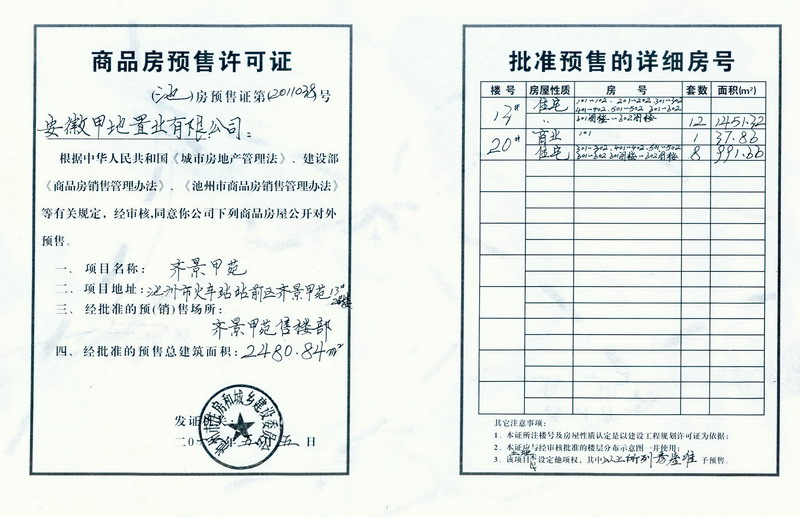 商品房预售许可证
(池)房预售证第(2011038)号
安徽甲地置业有限公司:
根据中华人民共和国《城市房地产管理法》、建设部
《商品房销售管理办法》、《池州市商品房销售管理办法》
等有关规定,经审核,同意你公司下列商品房屋公开对外
预售。
一、项目名称: 齐景甲苑
二、项目地址:池州市火车站站前区齐景甲苑13#
三、经批准的预(销)售场所:
齐景甲苑售楼部
四、经批准的预售总建筑面积:2480.84m²
发证机关:
池州市住房和城乡建设委员会
二〇一 年五 五日
批准预售的详细房号
楼号 房屋性质 房号 套数 面积(m²)
13# 住宅 101-102. 201-202. 301-302
401-402. 501-502
301阁楼--302阁楼 12 1451.32
20# 商业 101 1 37.86
住宅 301-302. 401-402. 501-502
301阁楼--302阁楼 8 991.66
其它注意事项:
1、本证所注楼号及房屋性质认定是以建设工程规划许可证为依据;
2、本证应与经审核批准的楼层分布示意图一并使用;
3、该项目 设定他项权,其中以上所列房屋准予预售。